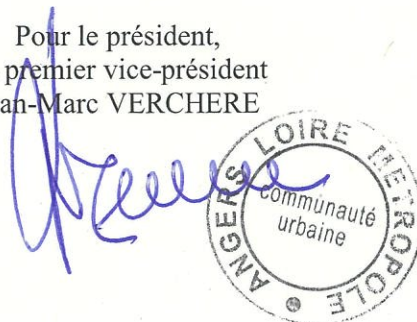 Pour le président,
premier vice-président
an-Marc VERCHERE
ANGERS LOIRE METROPOLE
communauté
urbaine